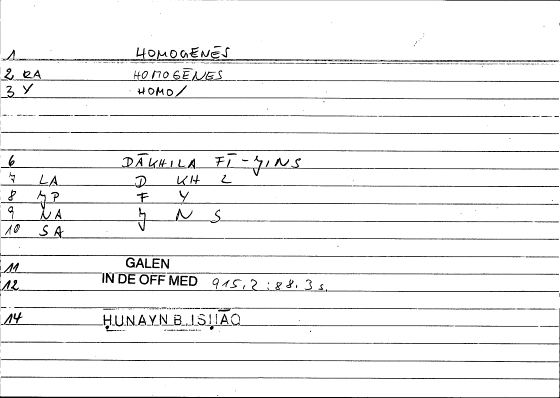 1 HOMOGENĒS
2 RA HOMOGĒNES
3 Y HOMO/
6 DĀKHILA FĪ-JINS
7 LA D KH L
8 JP F Y
9 NA J N S
10 SA
11 GALEN
12 IN DE OFF MED 915.2:88.3s.
14 ḤUNAYN B. ISḤĀQ